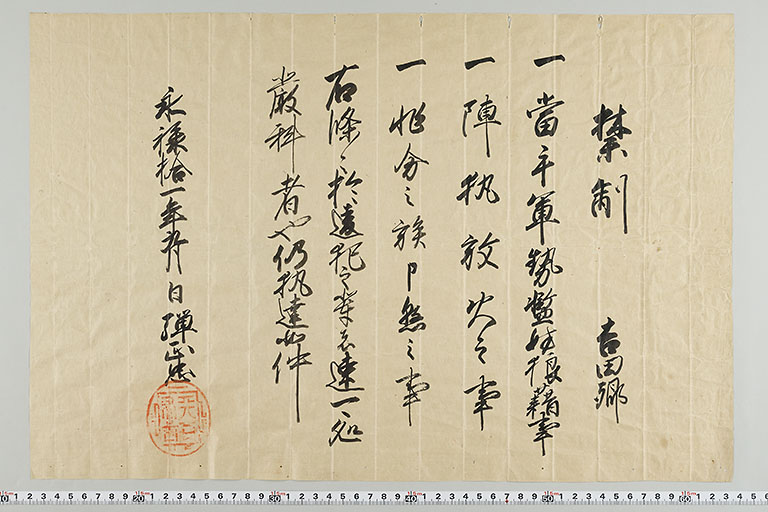 禁制　　吉田郷
一當手軍勢濫妨狼藉事
一陣執放火之事
一非分之族申懸之事
右條々於違犯之輩者速可處
嚴科者也仍執達如件
永禄拾一年九月　日　弾正忠